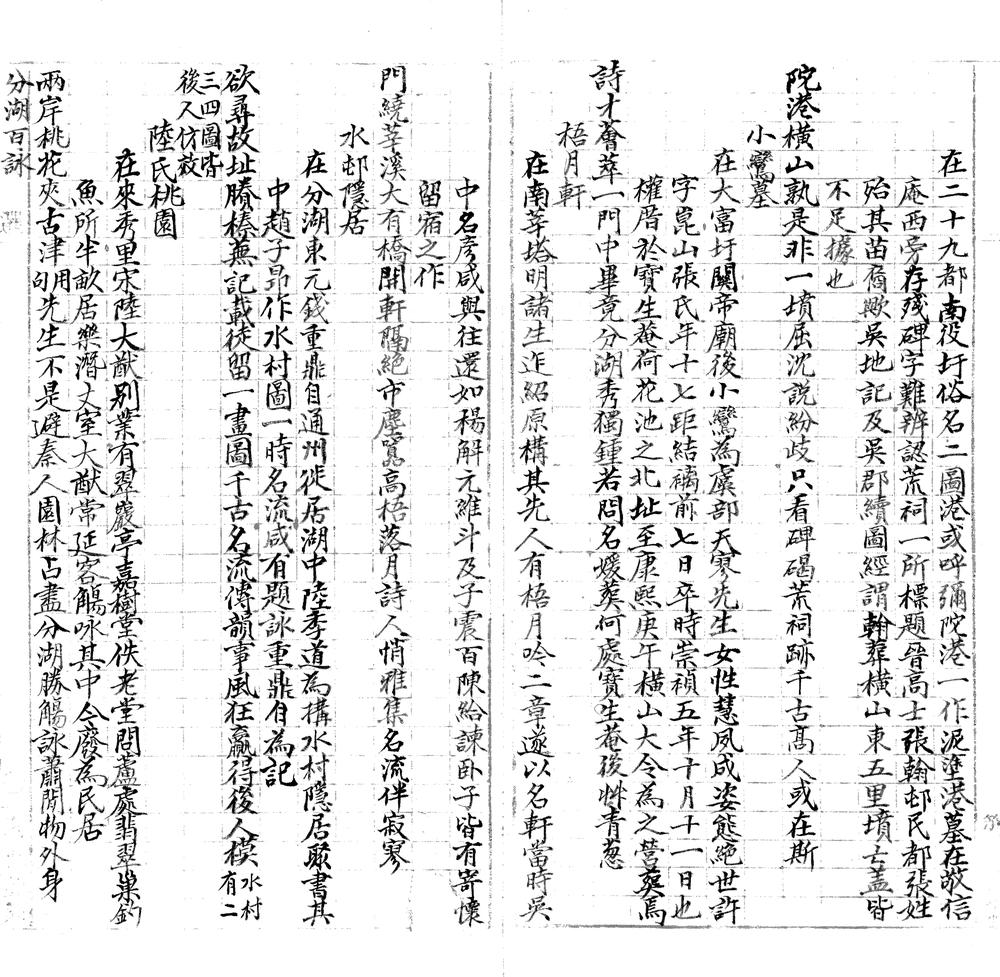 在二十九都南役圩俗名二圖港或呼彌陀港一作泥塗港墓在敬信
庵西旁存殘碑字難辨認荒祠一所標題晉高士張翰邨民都張姓
殆其苗裔歟吳地記及吳郡續圖經謂翰葬橫山東五里墳亡蓋皆
不足據也
陀港橫山孰是非一墳屈沈說紛歧只看碑碣荒祠跡千古高人或在斯
小鸞墓
在大富圩關帝廟後小鸞為虞部天寥先生女性慧夙成姿態絕世許
字崑山張氏年十七距結褵前七日卒時崇禎五年十月十一日也
權厝於寶生菴荷花池之北址至康熙庚午橫山大令為之營葬焉
詩才薈萃一門中畢竟分湖秀獨鍾若問名媛葬何處寶生菴後艸青葱
梧月軒
在南莘塔明諸生迮紹原構其先人有梧月吟二章遂以名軒當時吳
中名彥咸與往還如楊解元維斗及子震百陳給諫臥子皆有寄懷
留宿之作
門繞莘溪大有橋開軒隔絕市塵囂高梧落月詩人悄雅集名流伴寂寥
水邨隱居
在分湖東元錢重鼎自通州徙居湖中陸季道為搆水村隱居聚書其
中趙子昂作水村圖一時名流咸有題詠重鼎自為記
欲尋故址賸榛蕪記載徒留一畫圖千古名流傳韻事風狂贏得後人模水村有二
三四圖皆
後人仿效
陸氏桃園
在來秀里宋陸大猷別業有翠巖亭嘉樹堂佚老堂問蘆處翡翠巢釣
魚所半畝居樂潛丈室大猷常延客觴咏其中今廢為民居
兩岸桃花夾古津用句先生不是避秦人園林占盡分湖勝觴詠蕭閒物外身
分湖百詠